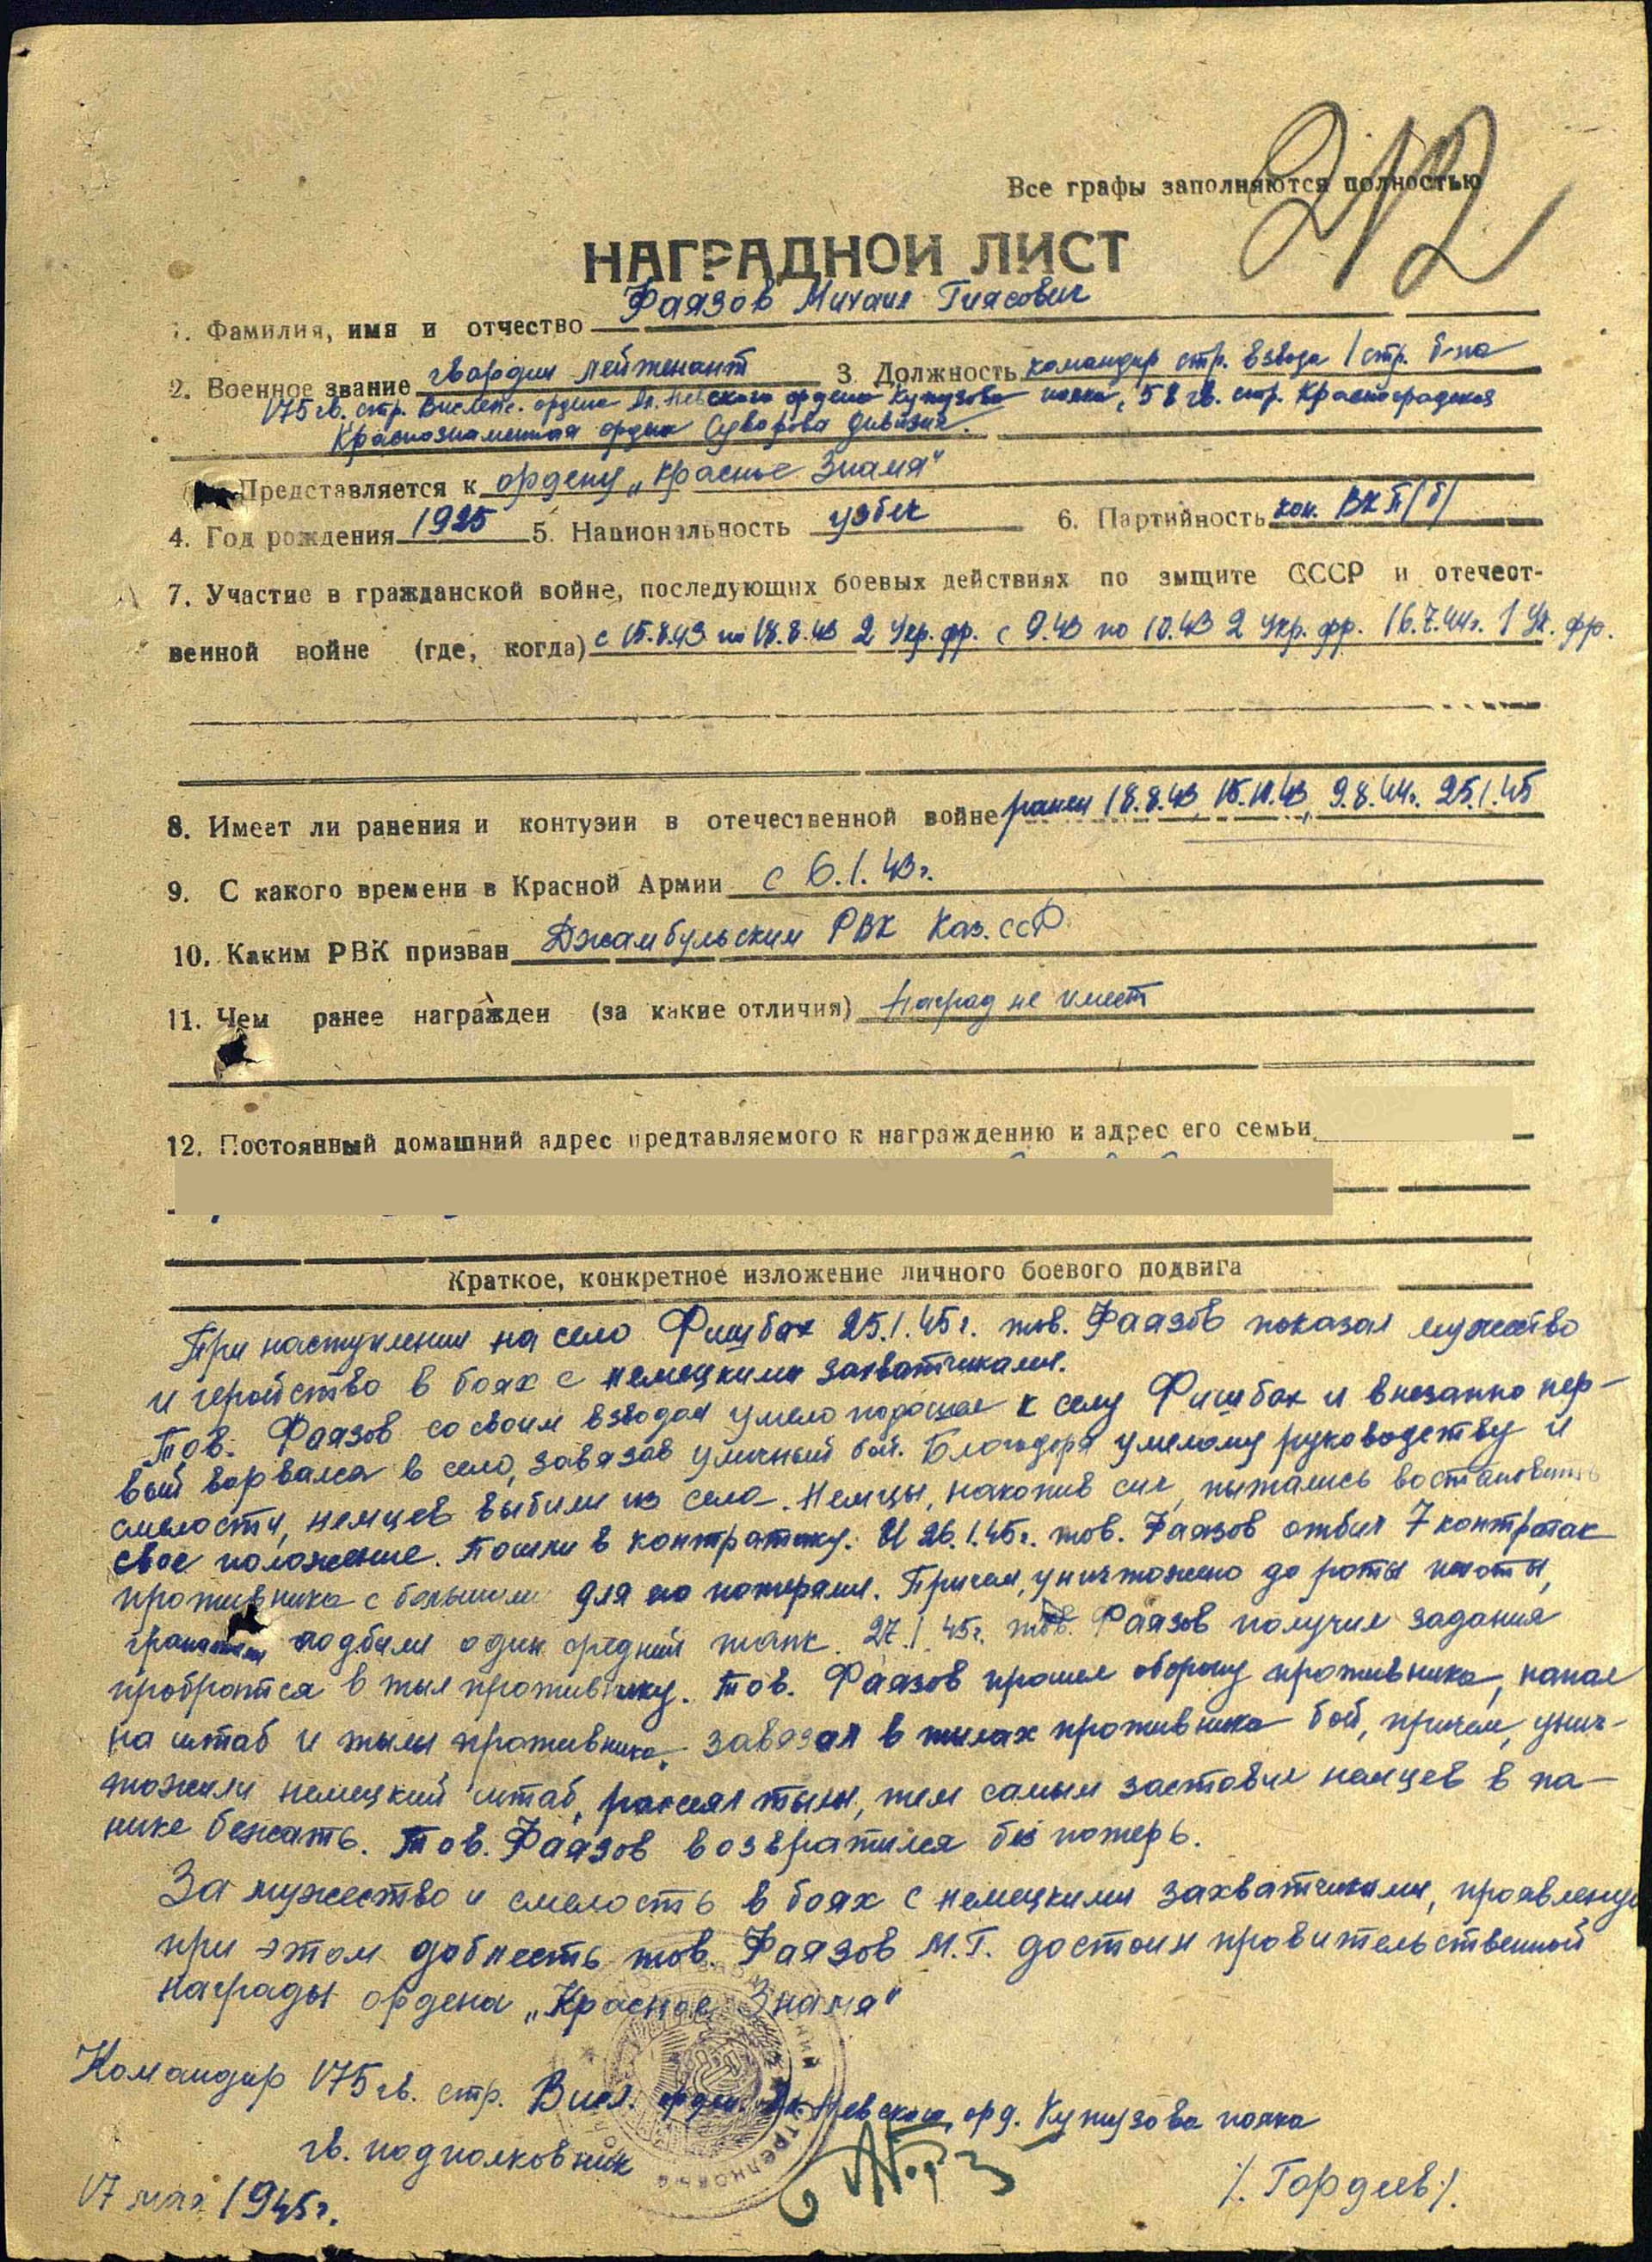 212
Все графы заполняются полностью
НАГРАДНОЙ ЛИСТ
1. Фамилия, имя и отчество Фаязов Михаил Гиясович
2. Военное звание гвардии лейтенант 3. Должность командир стр. взвода 1 стр. б-на
175 гв. стр. Вислен. ордена Ал. Невского ордена Кутузова полка, 58 гв. стр. Красноградская
Краснознаменная ордена Суворова дивизия.
Представляется к ордену „Красное Знамя"
4. Год рождения 1925 5. Национальность узбек 6. Партийность кан. ВКП/б/
7. Участие в гражданской войне, последующих боевых действиях по змщите СССР и отечест-
венной войне (где, когда) с 15.8.43 по 18.8.43 2 Укр. фр. с 9.43 по 10.43 2 Укр. фр. 16.7.44г. 1 Ук. фр.
8. Имеет ли ранения и контузии в отечественной войне ранен 18.8.43, 15.10.43, 9.8.44г. 25.1.45
9. С какого времени в Красной Армии с 6.1.43г.
10. Каким РВК призван Джамбульским РВК Каз. ССР
11. Чем ранее награжден (за какие отличия) Наград не имеет
12. Постоянный домашний адрес предтавляемого к награждению и адрес его семьи
Краткое, конкретное изложение личного боевого подвига
При наступлении на село Фишбах 25.1.45г. тов. Фаязов показал мужество
и геройство в боях с немецкими захватчиками.
Тов. Фаязов со своим взводом умело подошел к селу Фишбах и внезапно пер-
вый ворвался в село, завязав уличный бой. Благодоря умелому руководству и
смелости, немцев выбили из села. Немцы, накопив сил, пытались востановить
свое положение. Пошли в контратаку. И 26.1.45г. тов. Фаязов отбил 7 контратак
противника с большими для него потерями. Причем, уничтожено до роты пехоты,
гранатами подбили один средний танк. 27.1.45г. тов. Фаязов получил задания
пробратся в тыл противнику. Тов. Фаязов прошел оборону противника, напал
на штаб и тылы противника, завязал в тылах противника бой, причем, унич-
тожили немецкий штаб, рассеял тылы, тем самым заставил немцев в па-
нике бежать. Тов. Фаязов возвратился без потерь.
За мужество и смелость в боях с немецкими захватчиками, проявленую
при этом доблесть тов. Фаязов М.Г. достоин правительственной
награды ордена „Красное Знамя"
Командир 175 гв. стр. Висл. орден. Ал. Невского, орд. Кутузова полка
гв. подполковник
/. Гордеев/.
17 мая 1945г.